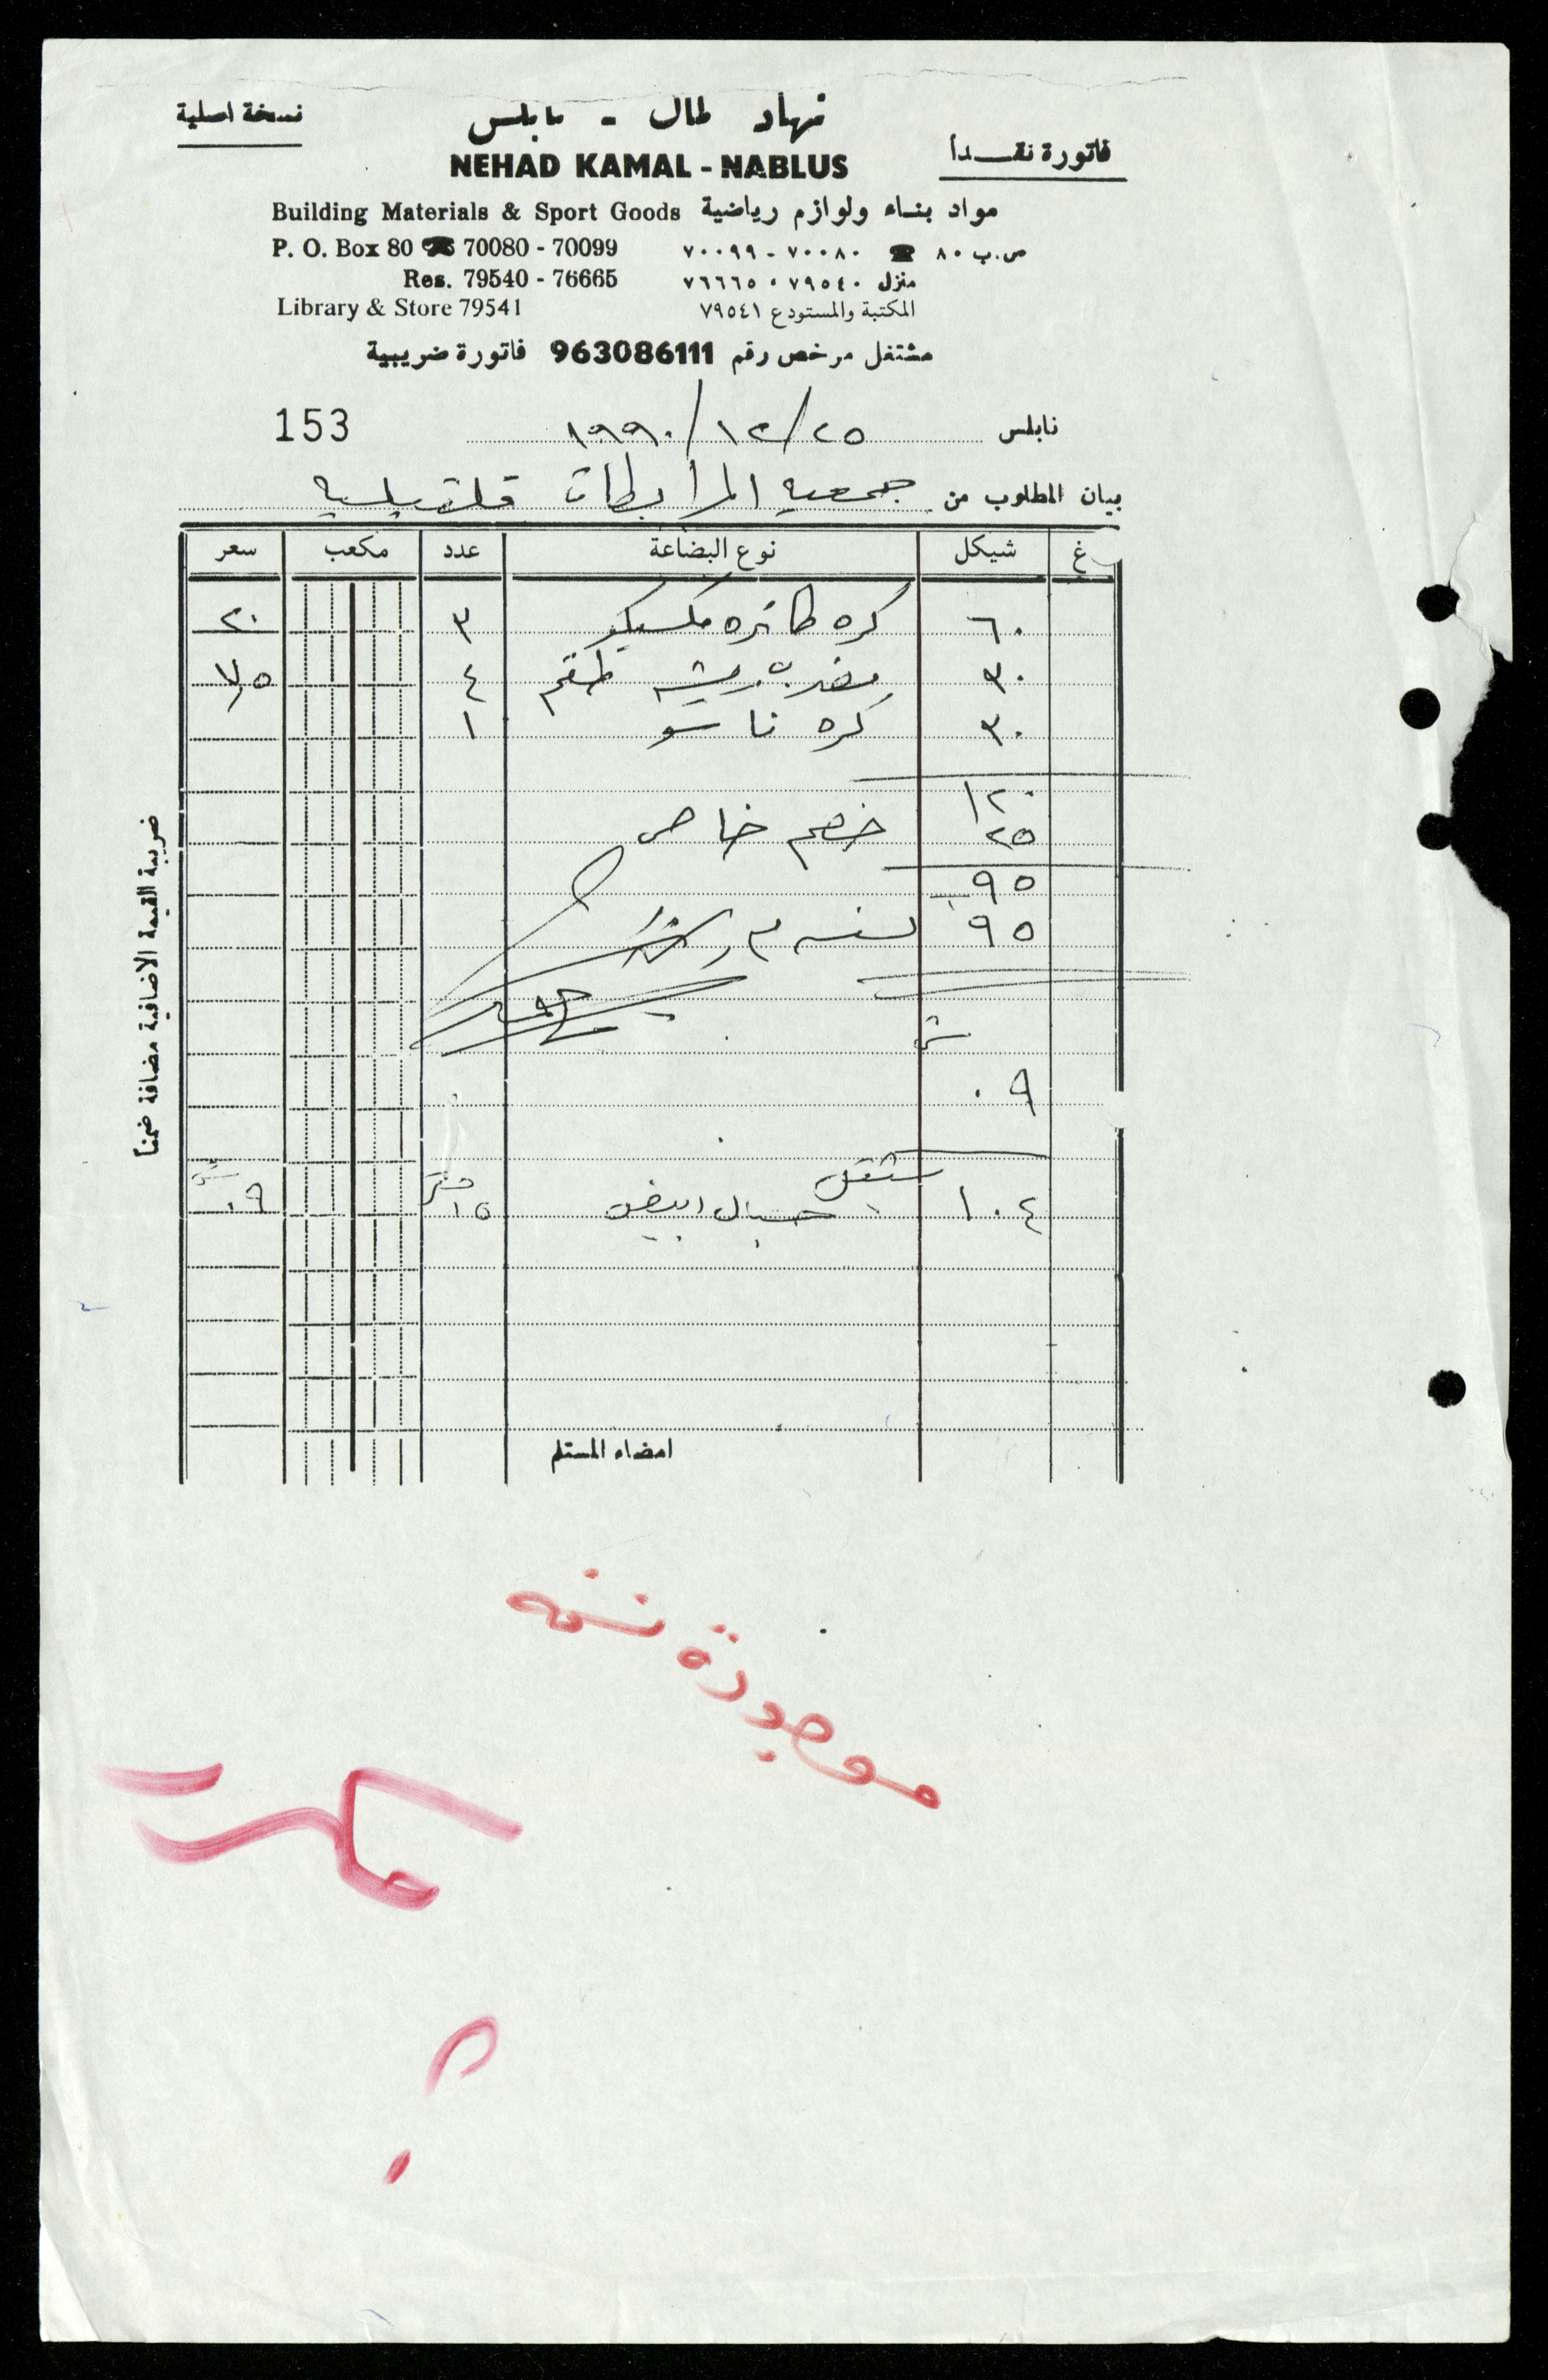 نسخة اصلية
نهاد كمال - نابلس
فاتورة نقداً
NEHAD KAMAL - NABLUS
Building Materials & Sport Goods مواد بناء ولوازم رياضية
P. O. Box 80 ☎ 70080 - 70099 ص.ب ٨٠ ☎ ٧٠٠٨٠ - ٧٠٠٩٩
Res. 79540 - 76665 منزل ٧٩٥٤٠ - ٧٦٦٦٥
Library & Store 79541 المكتبة والمستودع ٧٩٥٤١
مشتغل مرخص رقم 963086111 فاتورة ضريبية
نابلس ٢٥/١٢/١٩٩٠ 153
بيان المطلوب من جمعيه المرابطات قلقيليه
غ شيكل نوع البضاعة عدد مكعب سعر
٦٠ كره طائره مكسيكو ٣ ٢٠
٣٠ مضرب ريشه طقم ٤ ٧,٥
٣٠ كره ناسو ١
١٢٠
٢٥ خصم خاص
٩٥
٩٥
٠٩
١٠٤ حبال ابيض ١٥ ٠٩
امضاء المستلم
ضريبة القيمة الاضافية مضافة ضمناً
موجودة نسخه
مكرر
؟